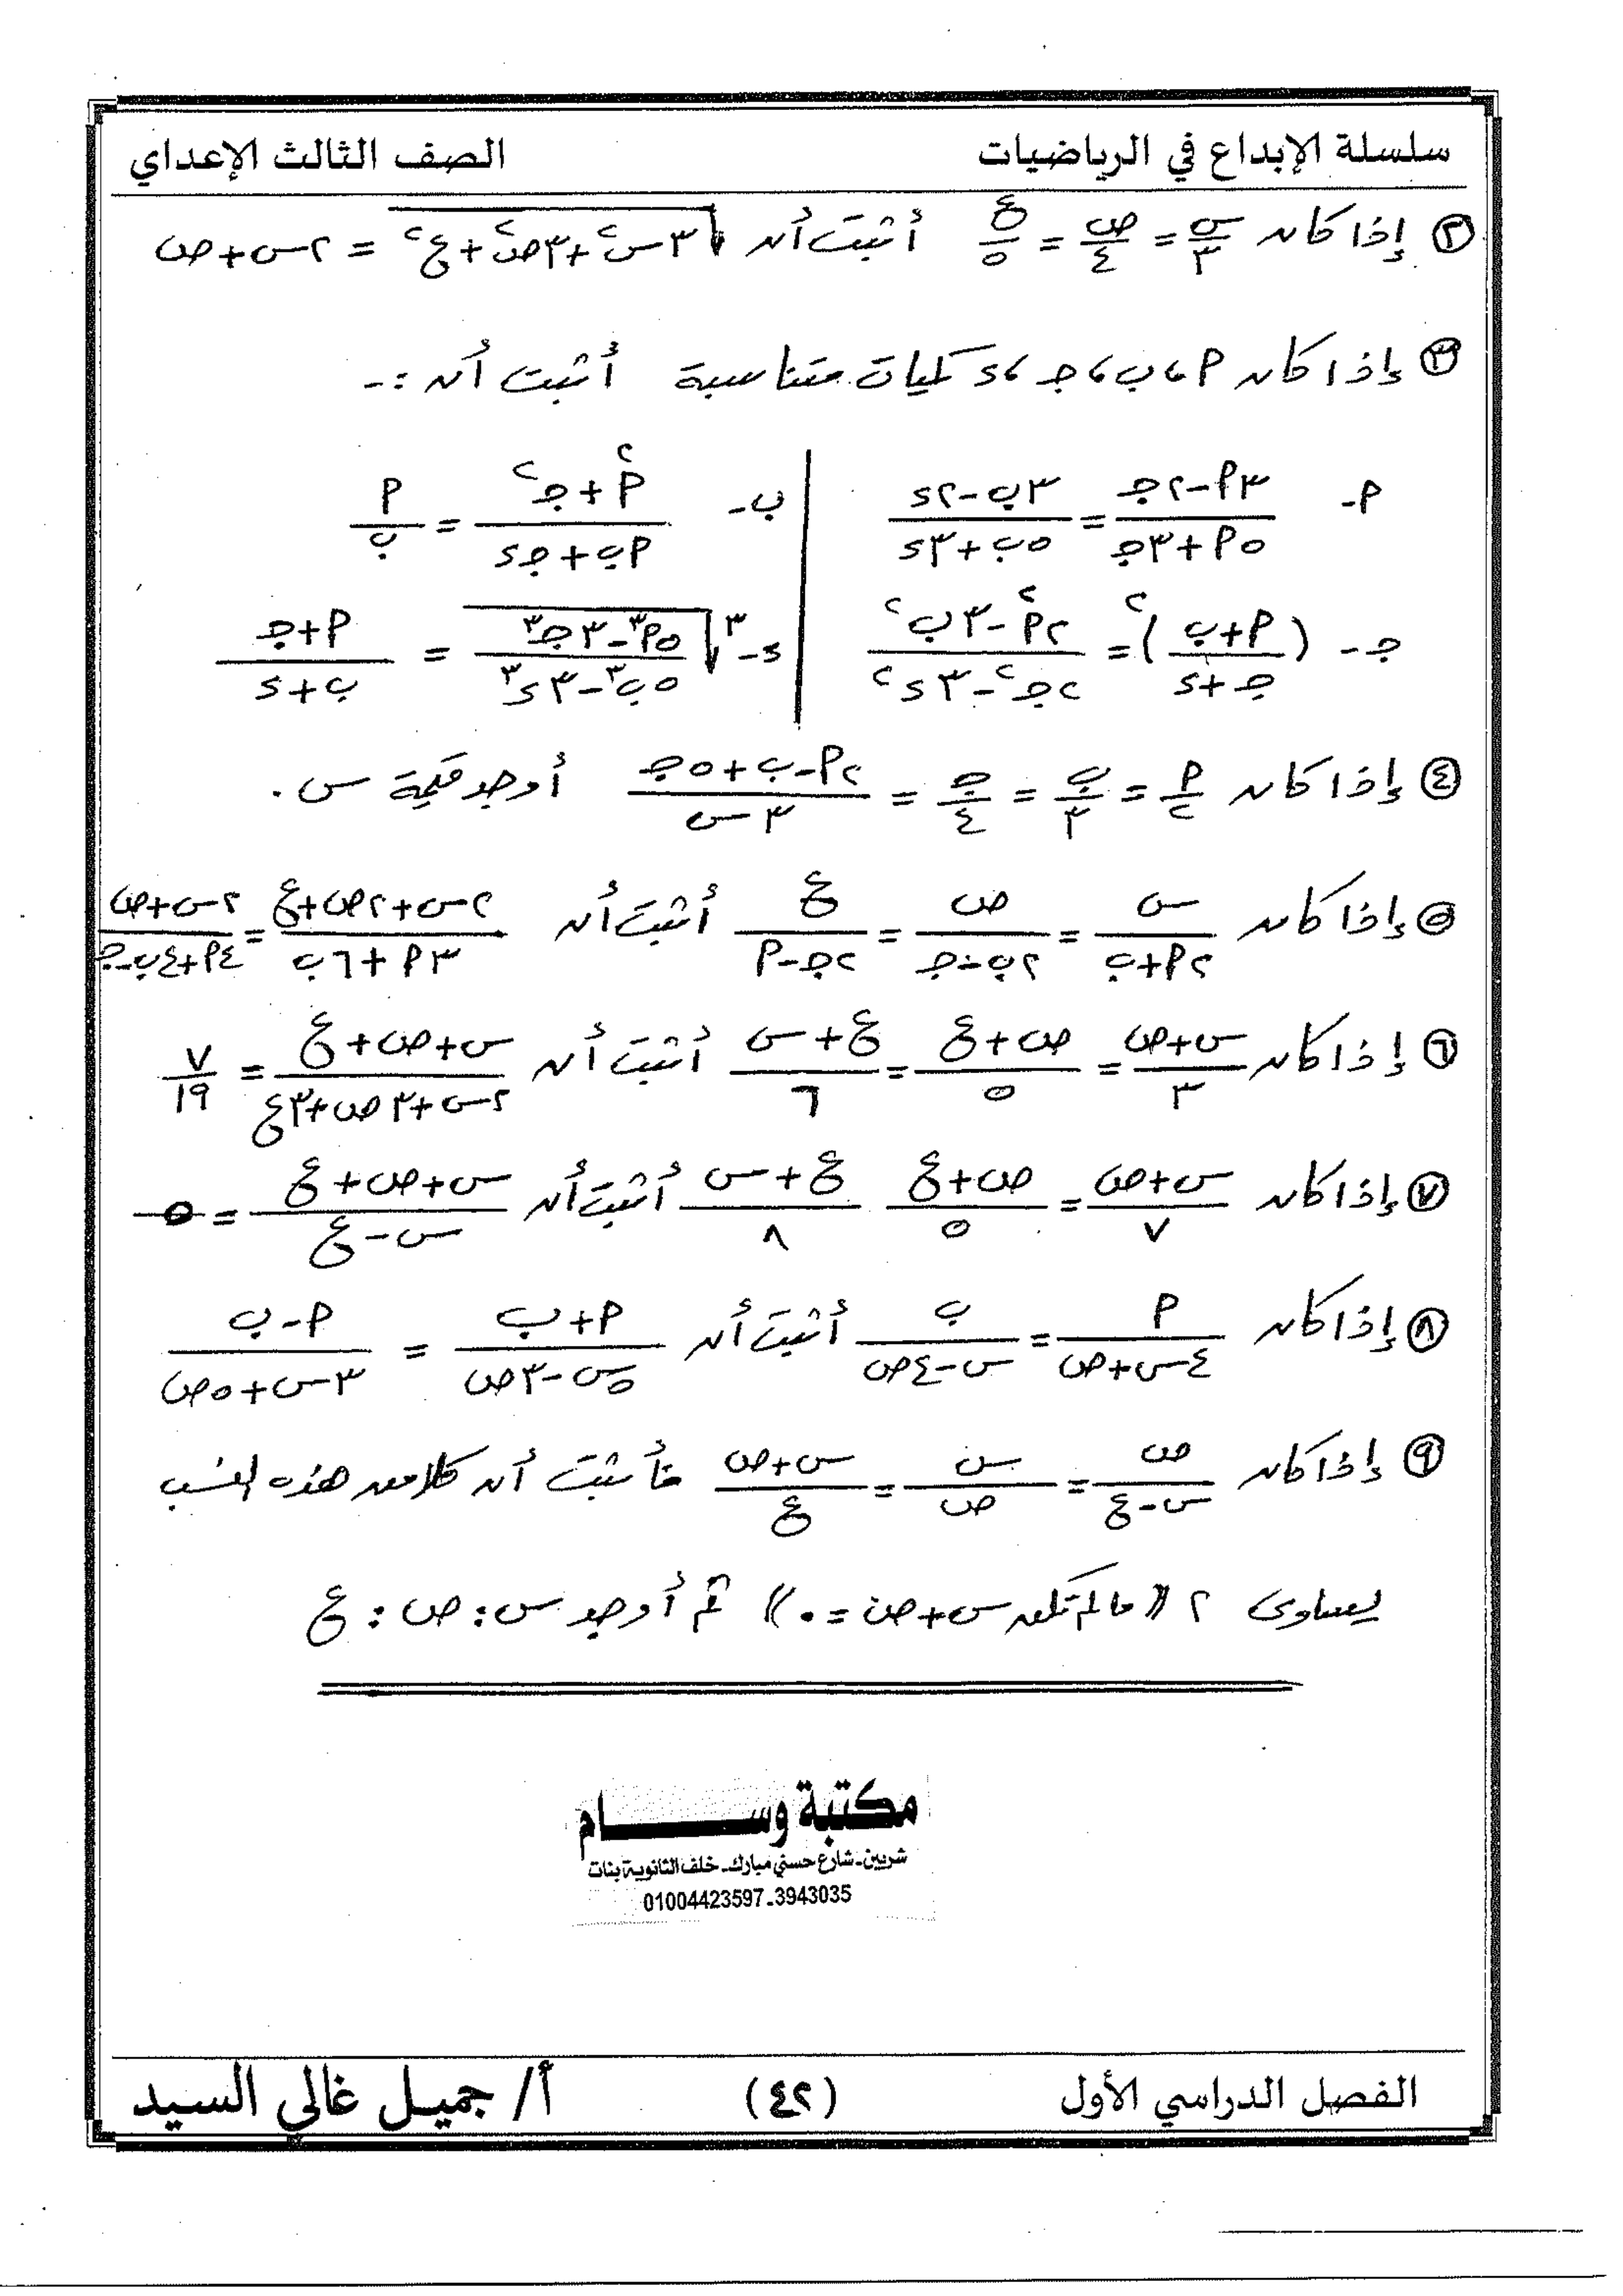 سلسلة الإبداع في الرياضيات الصف الثالث الإعدادي
② إذا كان س/٣ = ص/٤ = ع/٥ أثبت أن √(٣س²+٣ص²+ع²) = ٢س+ص
③ إذا كان م، ب، جـ، د كميات متناسبة أثبت أن :-
م- (٣م-٢جـ)/(٥م+٣جـ) = (٣ب-٢د)/(٥ب+٣د) ب- (م²+جـ²)/(م ب+جـ د) = م/ب
جـ- ((م+ب)/(جـ+د))² = (٢م²-٣ب²)/(٢جـ²-٣د²) د- ∛((٥م³-٣جـ³)/(٥ب³-٣د³)) = (م+جـ)/(ب+د)
④ إذا كان م/٢ = ب/٣ = جـ/٤ = (٢م-ب+٥جـ)/٣س أوجد قيمة س .
⑤ إذا كان س/(٢م+ب) = ص/(٢ب-جـ) = ع/(٢جـ-م) أثبت أن (٢س+٢ص+ع)/(٣م+٦ب) = (٢س+ص)/(٤م+٤ب-جـ)
⑥ إذا كان (س+ص)/٣ = (ص+ع)/٥ = (ع+س)/٦ أثبت أن (س+ص+ع)/(٢س+٣ص+٣ع) = ٧/١٩
⑦ إذا كان (س+ص)/٧ = (ص+ع)/٥ (ع+س)/٨ أثبت أن (س+ص+ع)/(س-ع) = ٥
⑧ إذا كان م/(٤س+ص) = ب/(س-٤ص) أثبت أن (م+ب)/(٥س-٣ص) = (م-ب)/(٣س+٥ص)
⑨ إذا كان ص/(س-ع) = س/ص = (س+ص)/ع فأثبت أن كلا من هذه النسب
يساوى ٢ ((ما لم تكن س+ص=٠)) ثم أوجد س:ص:ع
مكتبة وســـام
شربين-شارع حسني مبارك-خلف الثانوية بنات
01004423597-3943035
الفصل الدراسي الأول (٤٢) أ/ جميل غالي السيد